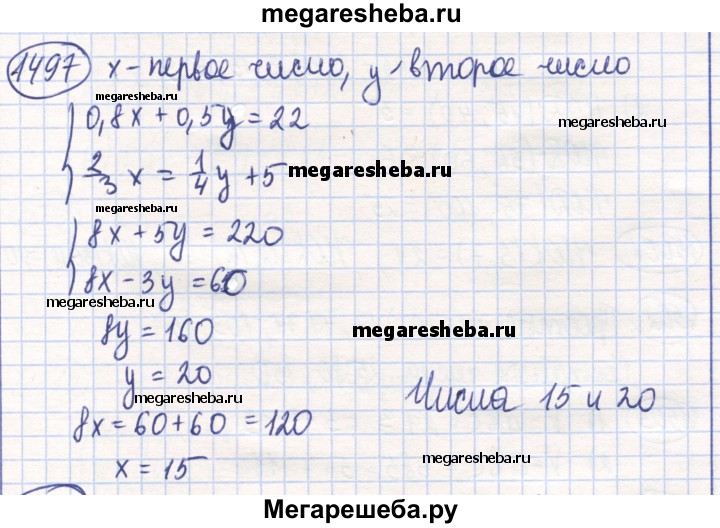 megaresheba.ru
1497 x - первое число, y - второе число
megaresheba.ru
0,8x + 0,5y = 22
megaresheba.ru
2/3 x = 1/4 y + 5
megaresheba.ru
megaresheba.ru
8x + 5y = 220
8x - 3y = 60
megaresheba.ru
8y = 160
megaresheba.ru
y = 20
8x = 60 + 60 = 120
Числа 15 и 20
x = 15
megaresheba.ru
Мегарешеба.ру